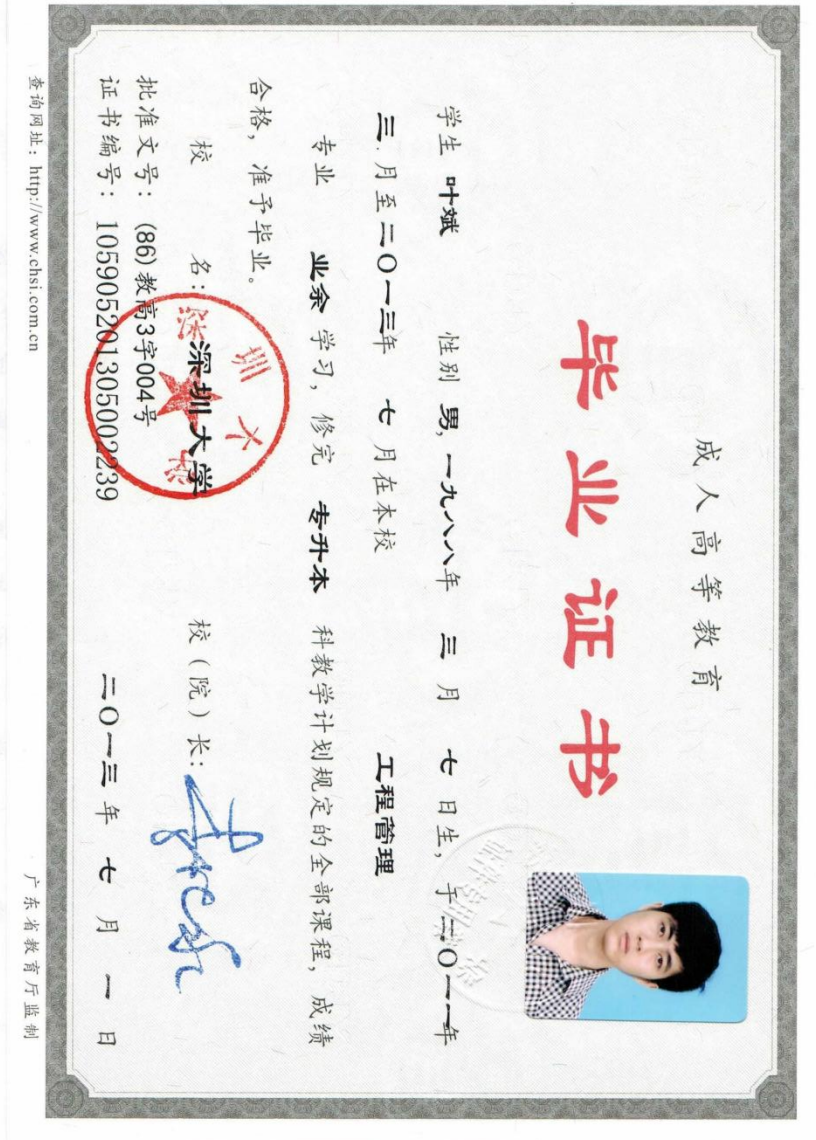 成人高等教育
毕业证书
学生 叶斌 性别 男,一九八八年 三 月 七 日生, 于二〇一一年
三.月至二〇一三年 七 月在本校 工程管理
专业 业余 学习, 修完 专升本 科教学计划规定的全部课程, 成绩
合格, 准予毕业。
校 名: 深圳大学 校(院)长:
批准文号: (86)教高3字004号
证书编号: 105905201305002239
二〇一三 年 七 月 一 日
查询网址: http://www.chsi.com.cn 广东省教育厅监制
深圳大学